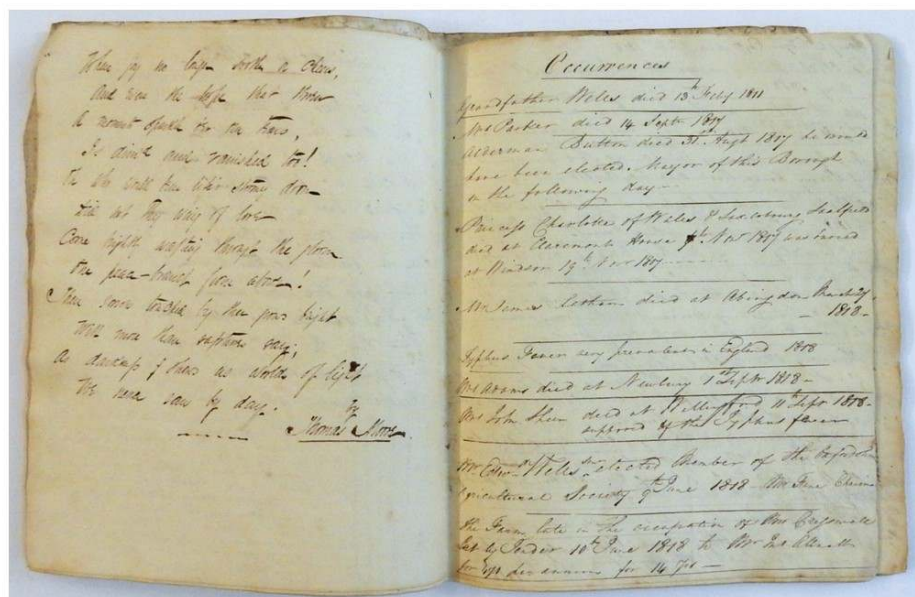 When joy no longer soothes or cheers,
And even the hope that threw
A moment's sparkle o'er our tears,
Is dimm'd and vanished too!
Oh who would bear life's stormy doom
Did not thy wing of love
Come brightly wafting through the gloom
Our peace-branch from above!
Then sorrow touched by thee grows bright
With more than rapture's ray;
As darkness shows us worlds of light
We never saw by day.
by
Thomas Moore.
Occurrences
Grandfather Wells died 13th Feby 1811
Mrs Parker died 14 Septr 1817
Alderman Button died 31st Augt 1817 he would
have been elected Mayor of this Borough
on the following day
Princess Charlotte of Wales & Saxe Cobourg Saalfeld
died at Claremont House Novr 1817 was interred
at Windsor 19th Novr 1817
Mr James died at Abingdon March 1818
Typhus Fever very prevalent in England 1818
Mrs Adams died at Newbury 1st Septr 1818
Mrs John died at Wallingford 11th Septr 1818
supposed of the Typhus fever
Mr Edwd Wells Senr elected Member of the Oxfordshire
Agricultural Society 9th June 1818
The Farm late in the occupation of Mr
Let by Tender 10th June 1818 to Mr
per annum for 14 Yrs